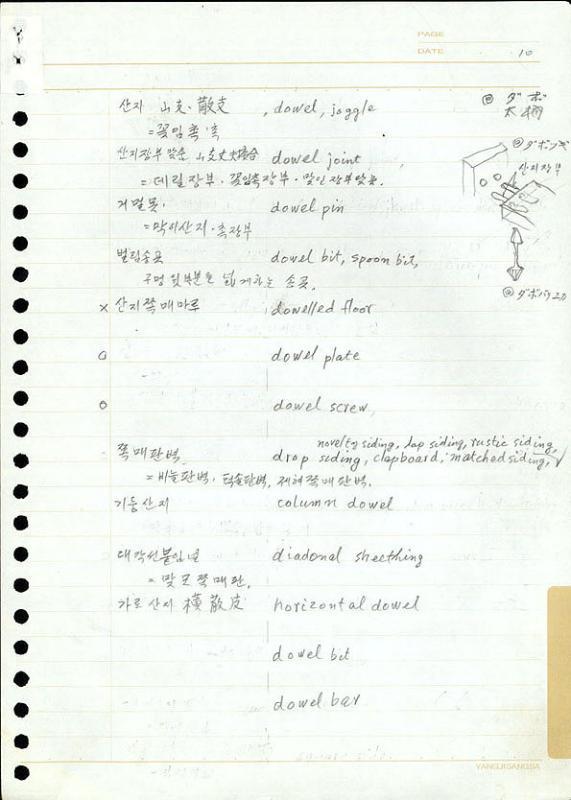 PAGE
DATE 10
산지 山支·散支, dowel, joggle
=꽂임촉·촉
산지장부맞춤 dowel joint
거멀못. dowel pin
=막이산지·촉장부
벌림송곳 dowel bit, spoon bit,
구멍 윗부분을 넓게하는 송곳.
x 산지쪽매마루 dowelled floor
o dowel plate
o dowel screw,
novelty siding, lap siding, rustic siding,
쪽매판벽 drop siding, clapboard, matched siding,
=비늘판벽, 턱솔판벽, 제혀쪽매판벽.
기둥산지 column dowel
대각선붙임널 diadonal sheething
= 맞댄쪽매판.
가로산지 橫散支 horizontal dowel
dowel bit
dowel bar
ダボ
太枘
산지장부
YANGJISANGSA